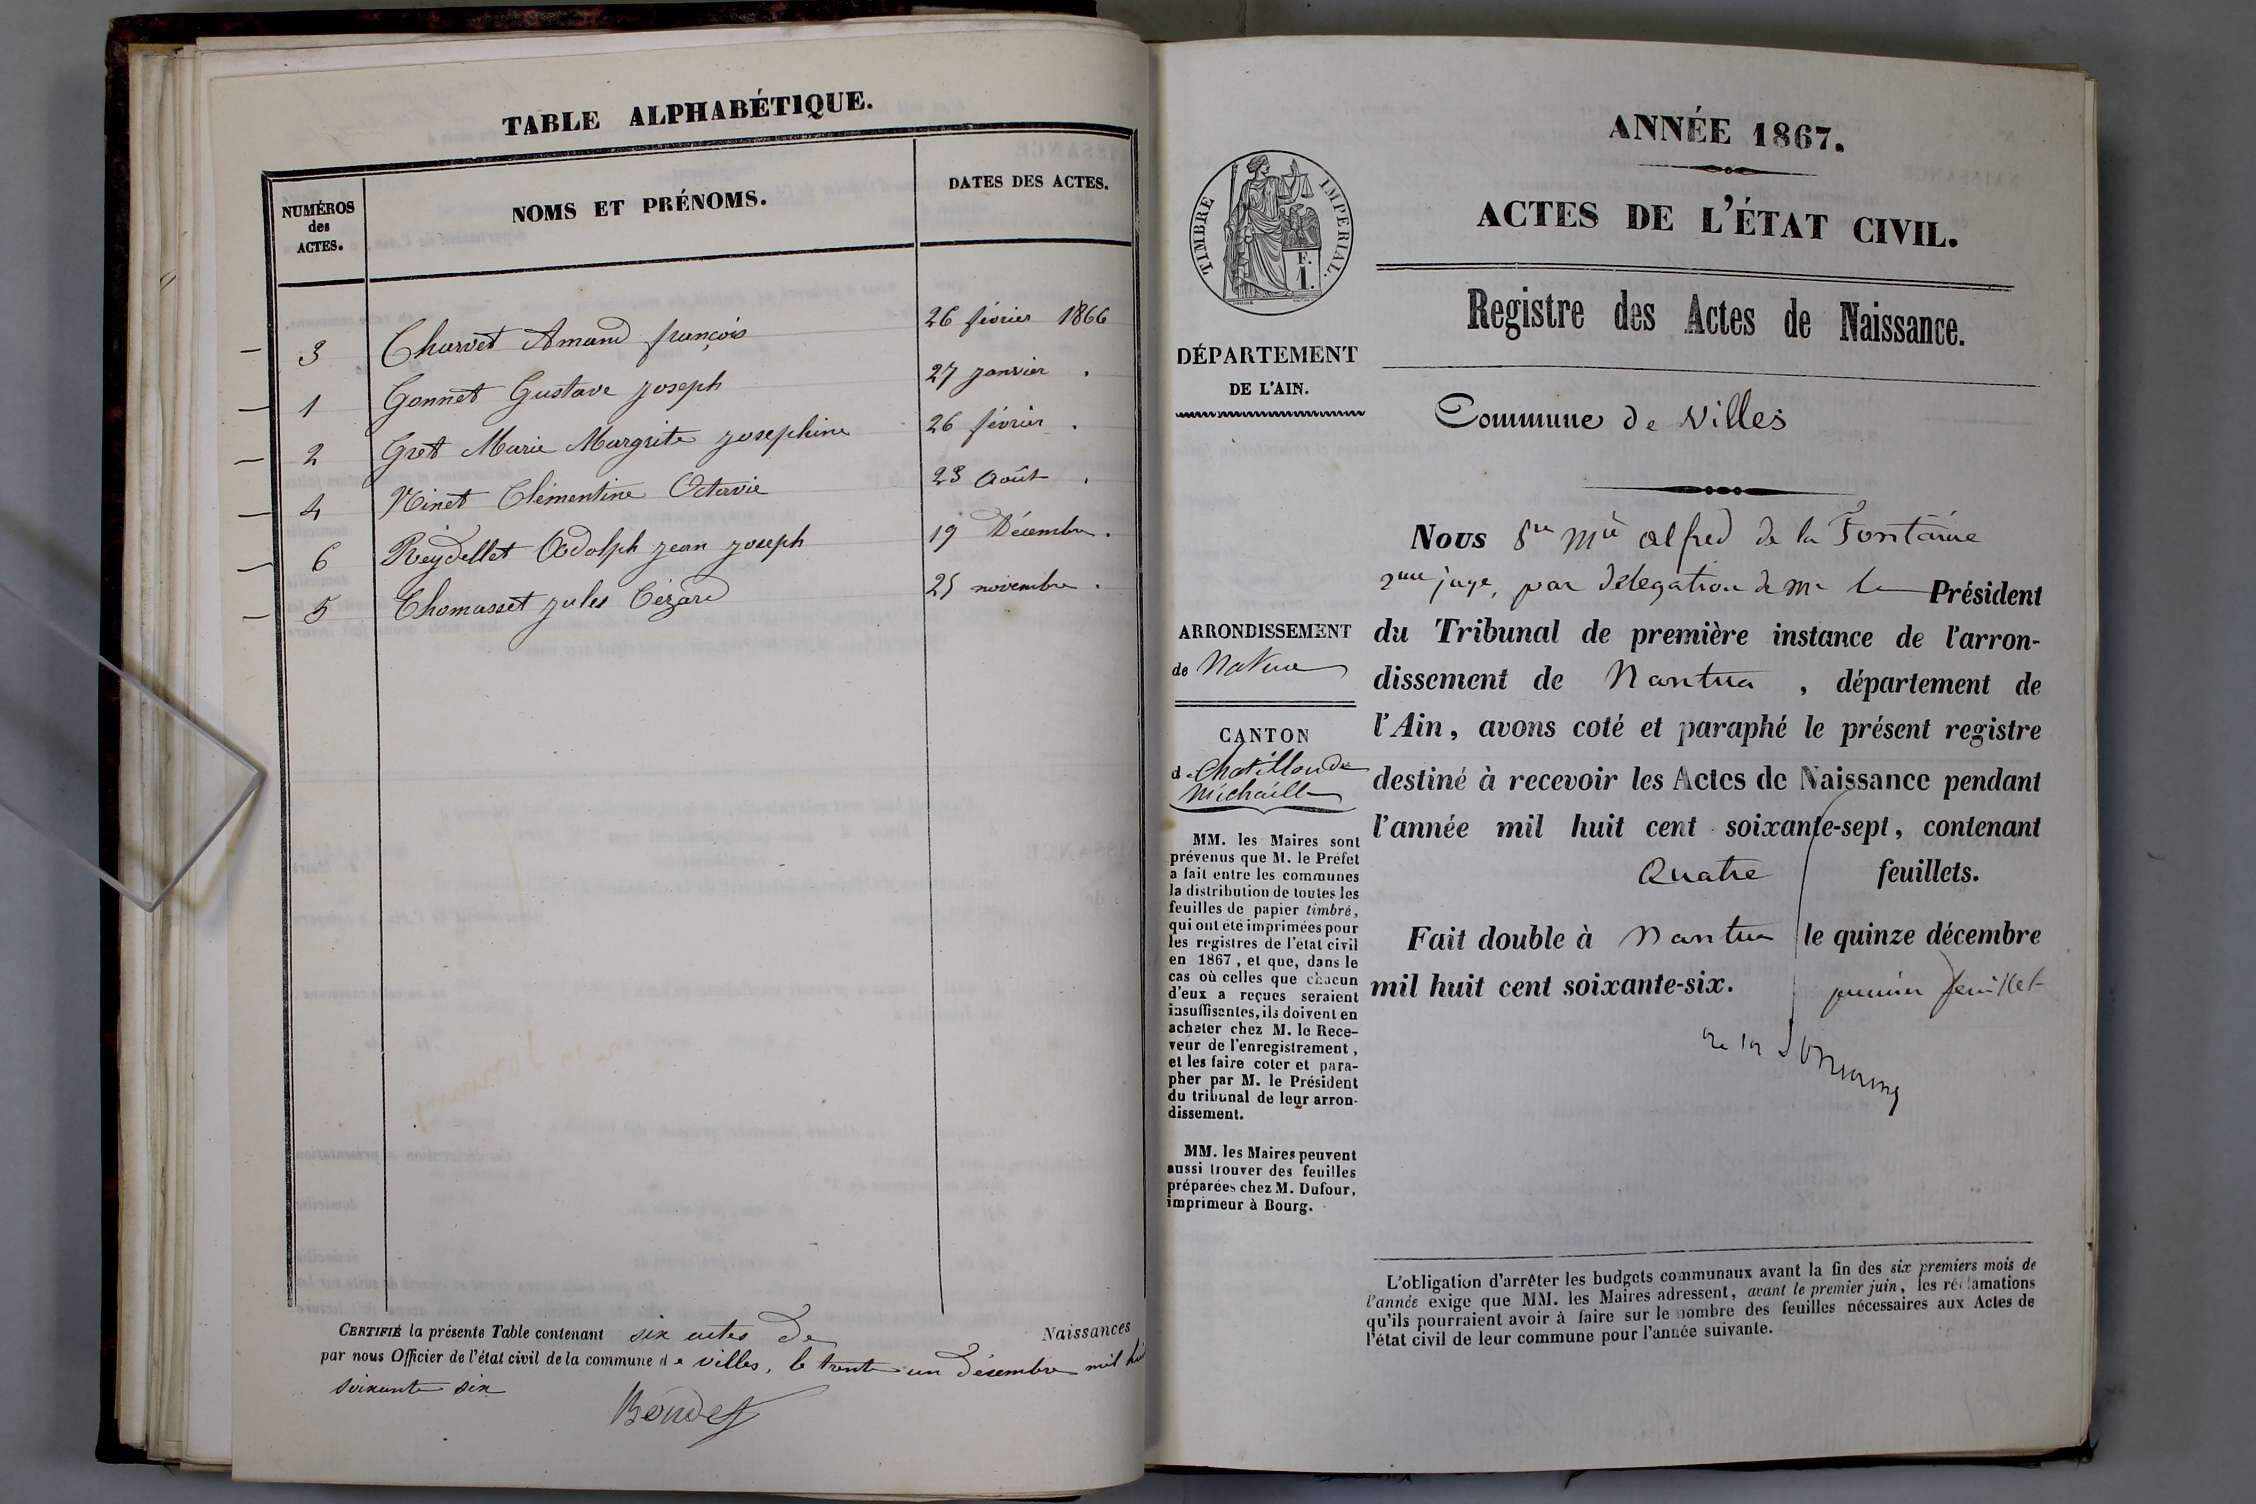 TABLE ALPHABÉTIQUE.
NUMÉROS
des
ACTES.
NOMS ET PRÉNOMS.
DATES DES ACTES.
3 Charvet Amand françois 26 février 1866
1 Gonnet Gustave joseph 27 janvier .
2 Gret Marie Margrite josephine 26 février .
4 Ninet Clémentine Octavie 23 Août .
6 Reydellet Adolph jean joseph 19 Décembre .
5 Thomasset jules Cézard 25 novembre .
CERTIFIÉ la présente Table contenant six actes De Naissances
par nous Officier de l'état civil de la commune de villes, le trente un décembre mil hui
soixante six
ANNÉE 1867.
ACTES DE L'ÉTAT CIVIL.
Registre des Actes de Naissance.
TIMBRE IMPÉRIAL.
F.
1.
DÉPARTEMENT
DE L'AIN.
Commune de Villes
Nous alfred de la Fontaine
juge, par délégation de Mr le Président
du Tribunal de première instance de l'arron-
dissement de Nantua , département de
l'Ain, avons coté et paraphé le présent registre
destiné à recevoir les Actes de Naissance pendant
l'année mil huit cent soixante-sept, contenant
Quatre feuillets.
Fait double à Nantua le quinze décembre
mil huit cent soixante-six.
premier feuillet
ARRONDISSEMENT
de
CANTON
de Chatillon de
Michaille
MM. les Maires sont
prévenus que M. le Préfet
a fait entre les communes
la distribution de toutes les
feuilles de papier timbré,
qui ont été imprimées pour
les registres de l'état civil
en 1867, et que, dans le
cas où celles que chacun
d'eux a reçues seraient
insuffisantes, ils doivent en
acheter chez M. le Rece-
veur de l'enregistrement,
et les faire coter et para-
pher par M. le Président
du tribunal de leur arron-
dissement.
MM. les Maires peuvent
aussi trouver des feuilles
préparées chez M. Dufour,
imprimeur à Bourg.
L'obligation d'arrêter les budgets communaux avant la fin des six premiers mois de
l'année exige que MM. les Maires adressent, avant le premier juin, les réclamations
qu'ils pourraient avoir à faire sur le nombre des feuilles nécessaires aux Actes de
l'état civil de leur commune pour l'année suivante.